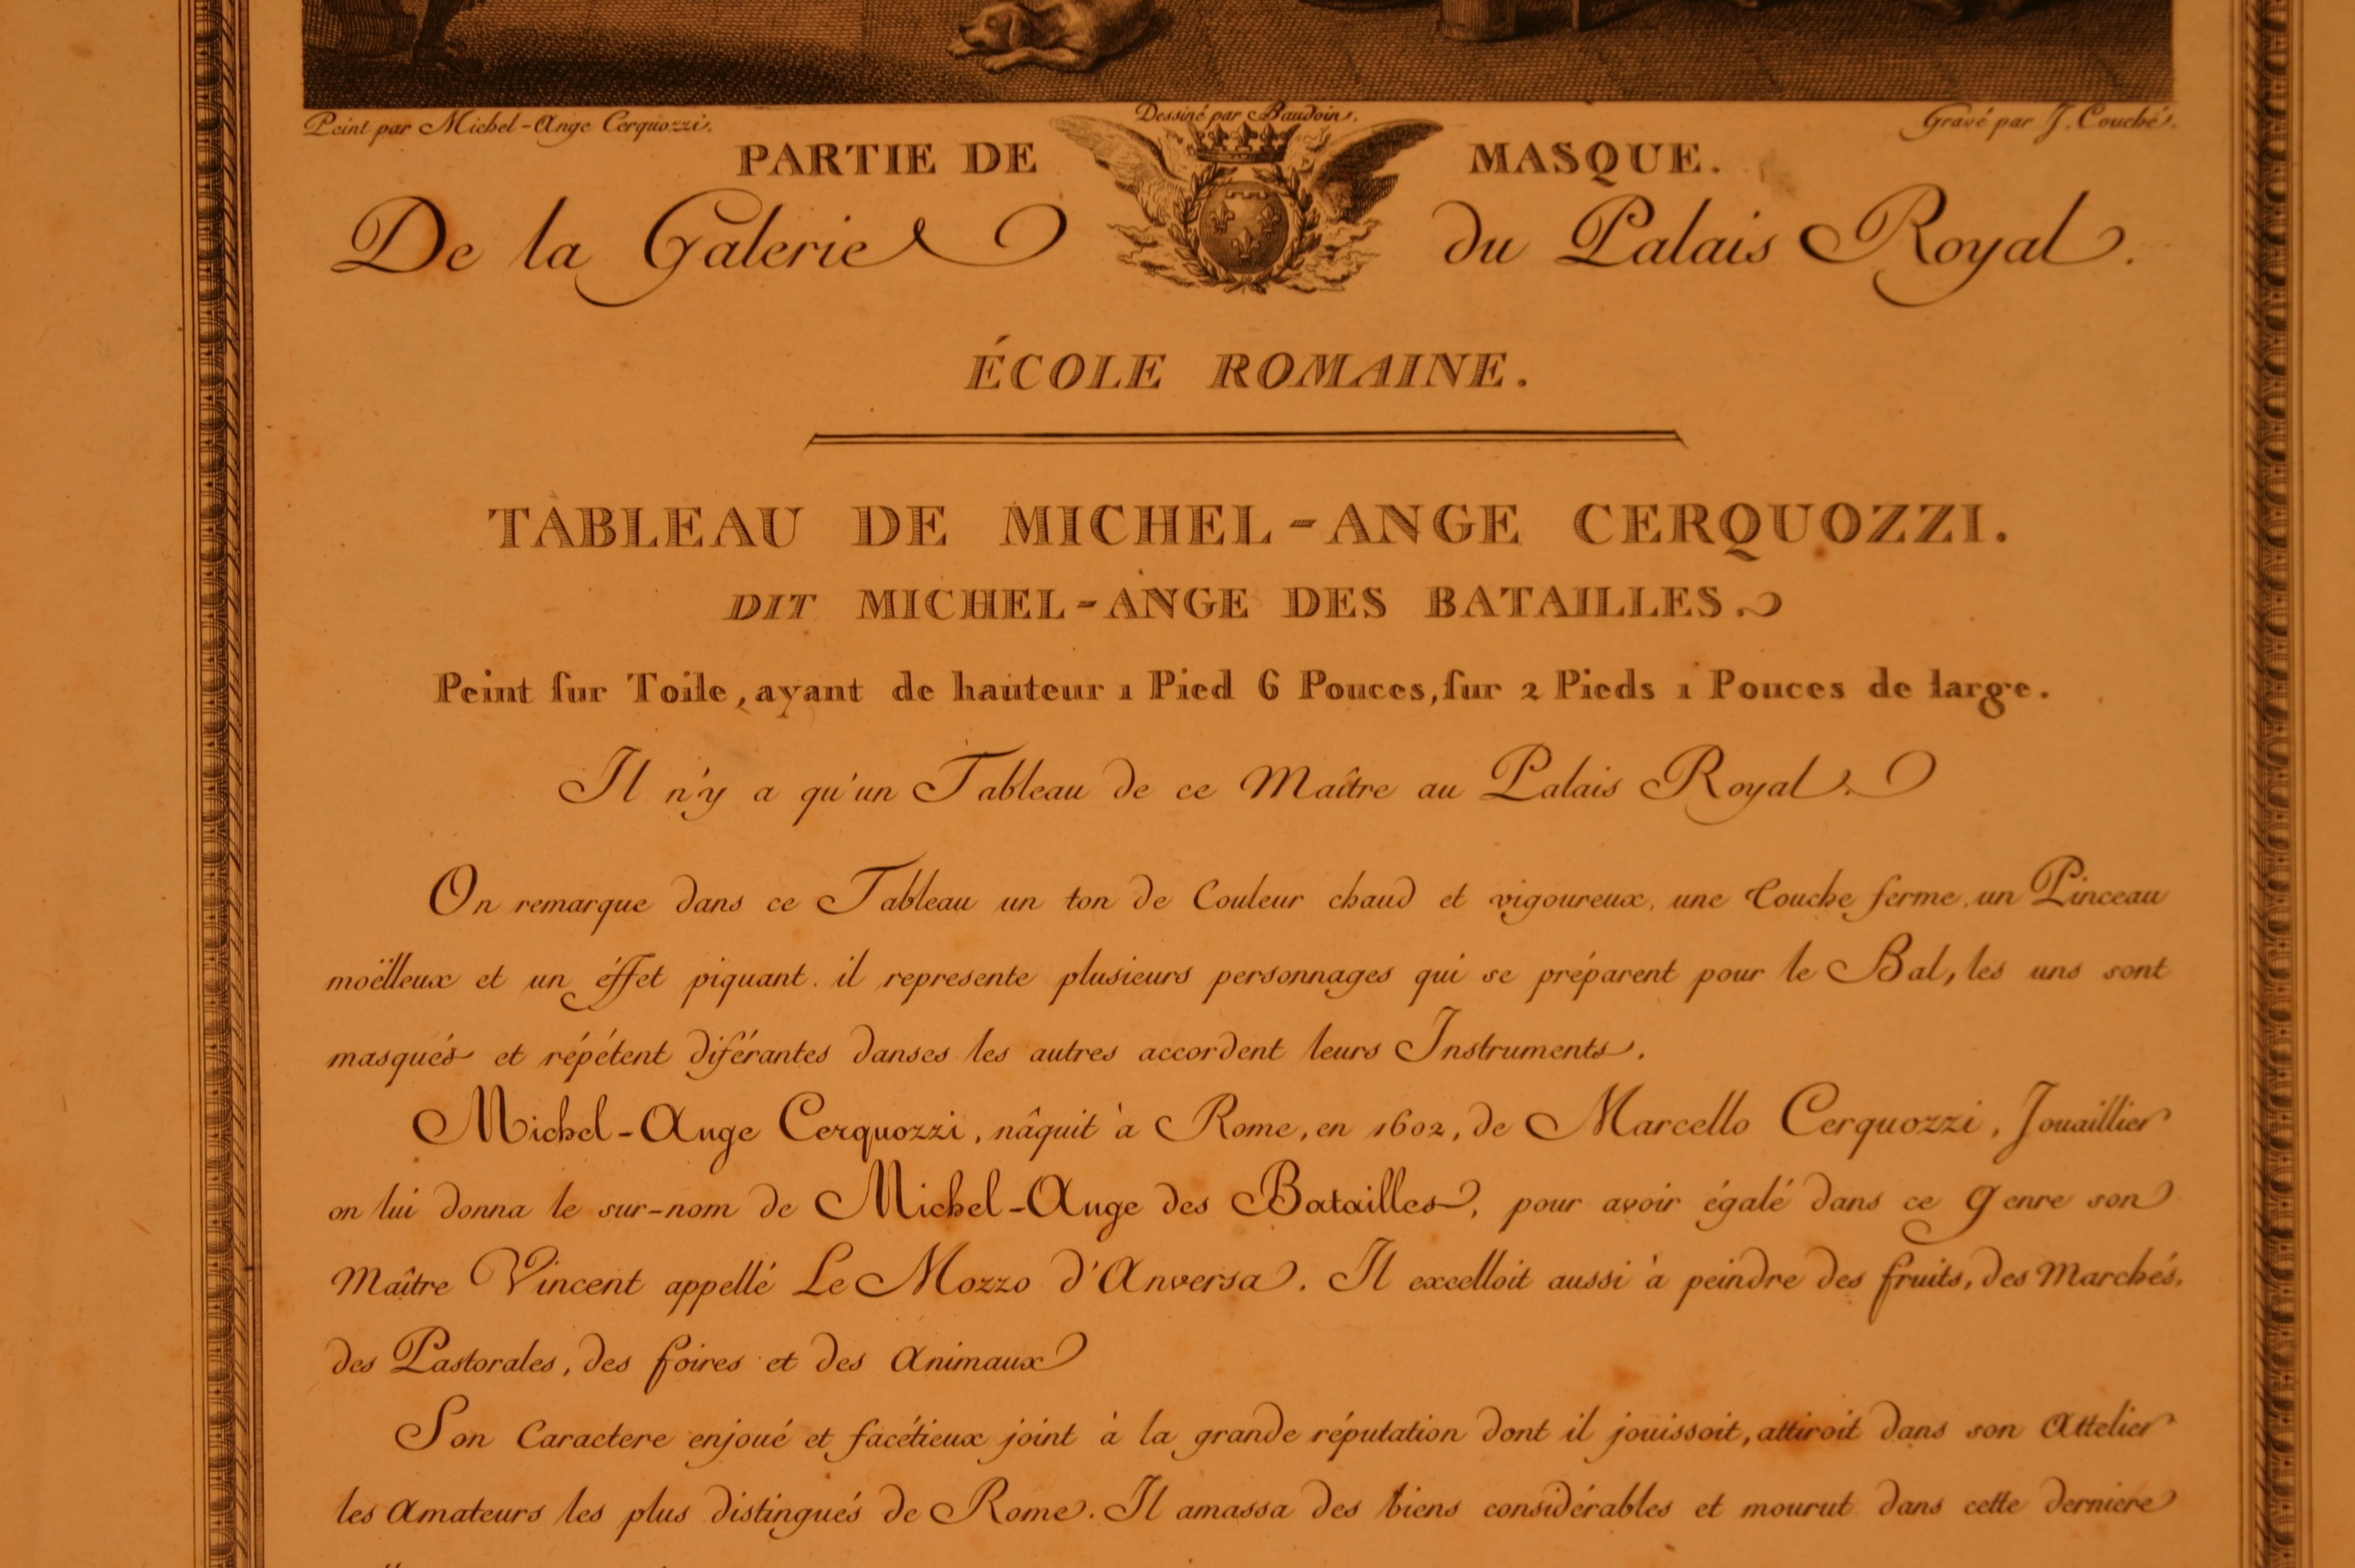 Peint par Michel-Ange Cerquozzi.
Dessiné par Baudoin.
Gravé par J. Couché.
PARTIE DE MASQUE.
De la Galerie du Palais Royal.
ÉCOLE ROMAINE.
TABLEAU DE MICHEL-ANGE CERQUOZZI.
DIT MICHEL-ANGE DES BATAILLES.
Peint ſur Toile, ayant de hauteur 1 Pied 6 Pouces, ſur 2 Pieds 1 Pouces de large.
Il n'y a qu'un Tableau de ce Maître au Palais Royal.
On remarque dans ce Tableau un ton de Couleur chaud et vigoureux, une touche ferme, un Pinceau
moëlleux et un éffet piquant. il represente plusieurs personnages qui se préparent pour le Bal, les uns sont
masqués et répétent diférantes danses les autres accordent leurs Instruments.
Michel-Ange Cerquozzi, nâquit à Rome, en 1602, de Marcello Cerquozzi, Jouaillier
on lui donna le sur-nom de Michel-Ange des Batailles, pour avoir égalé dans ce Genre son
Maître Vincent appellé Le Mozzo d'Anversa. Il excelloit aussi à peindre des fruits, des Marchés,
des Pastorales, des foires et des Animaux
Son Caractere enjoué et facétieux joint à la grande réputation dont il jouissoit, attiroit dans son Attelier
les Amateurs les plus distingués de Rome. Il amassa des biens considérables et mourut dans cette derniere